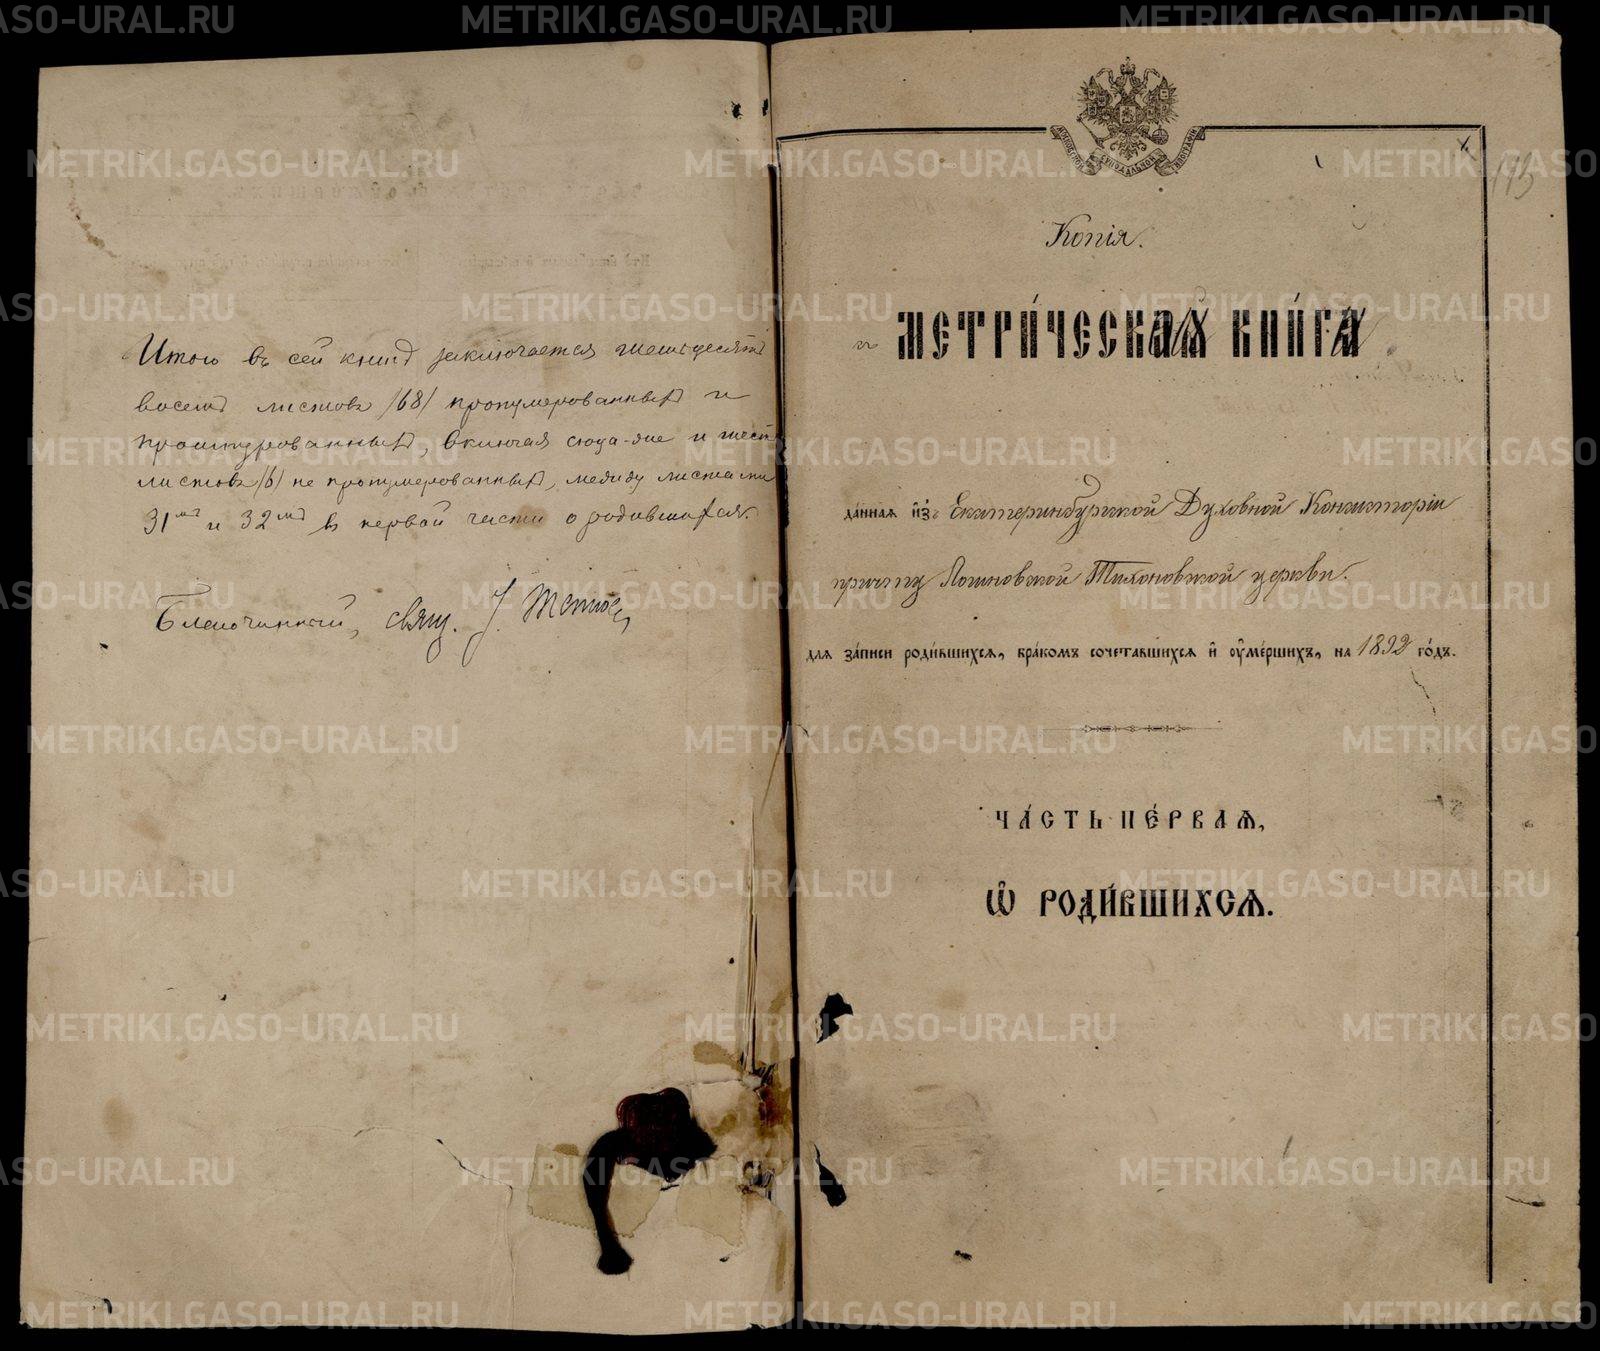 Итого въ сей книгѣ заключается шестьдесятъ
восемь листовъ /68/ пронумерованныхъ и
прошнурованныхъ, включая сюда-же и шесть
листовъ /6/ не пронумерованныхъ, между листами
31мъ и 32мъ въ первой части о родившихся.
Благочинный, свящ. І.
Копія.
МЕТРИ́ЧЕСКАѦ КНИ́ГА
да́нная и҆з̾ Екатеринбургской Духовной Консисторіи
причту Логиновской Тихоновской церкви.
для за́писи роди́вшихсѧ, бра́комъ сочета́вшихсѧ и҆ ᲂу҆ме́ршихъ, на 1892 го́дъ.
ЧА́СТЬ ПЕ́РВАѦ,
Ѡ҆ РОДИ́ВШИХСѦ.
METRIKI.GASO-URAL.RU